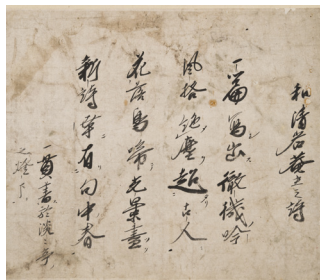 和清岩菴主之詩
一篇寫出徹機吟
風格絶塵超古人
花落鳥啼光景盡
新詩幸有句中春
一貫書於
之燈下